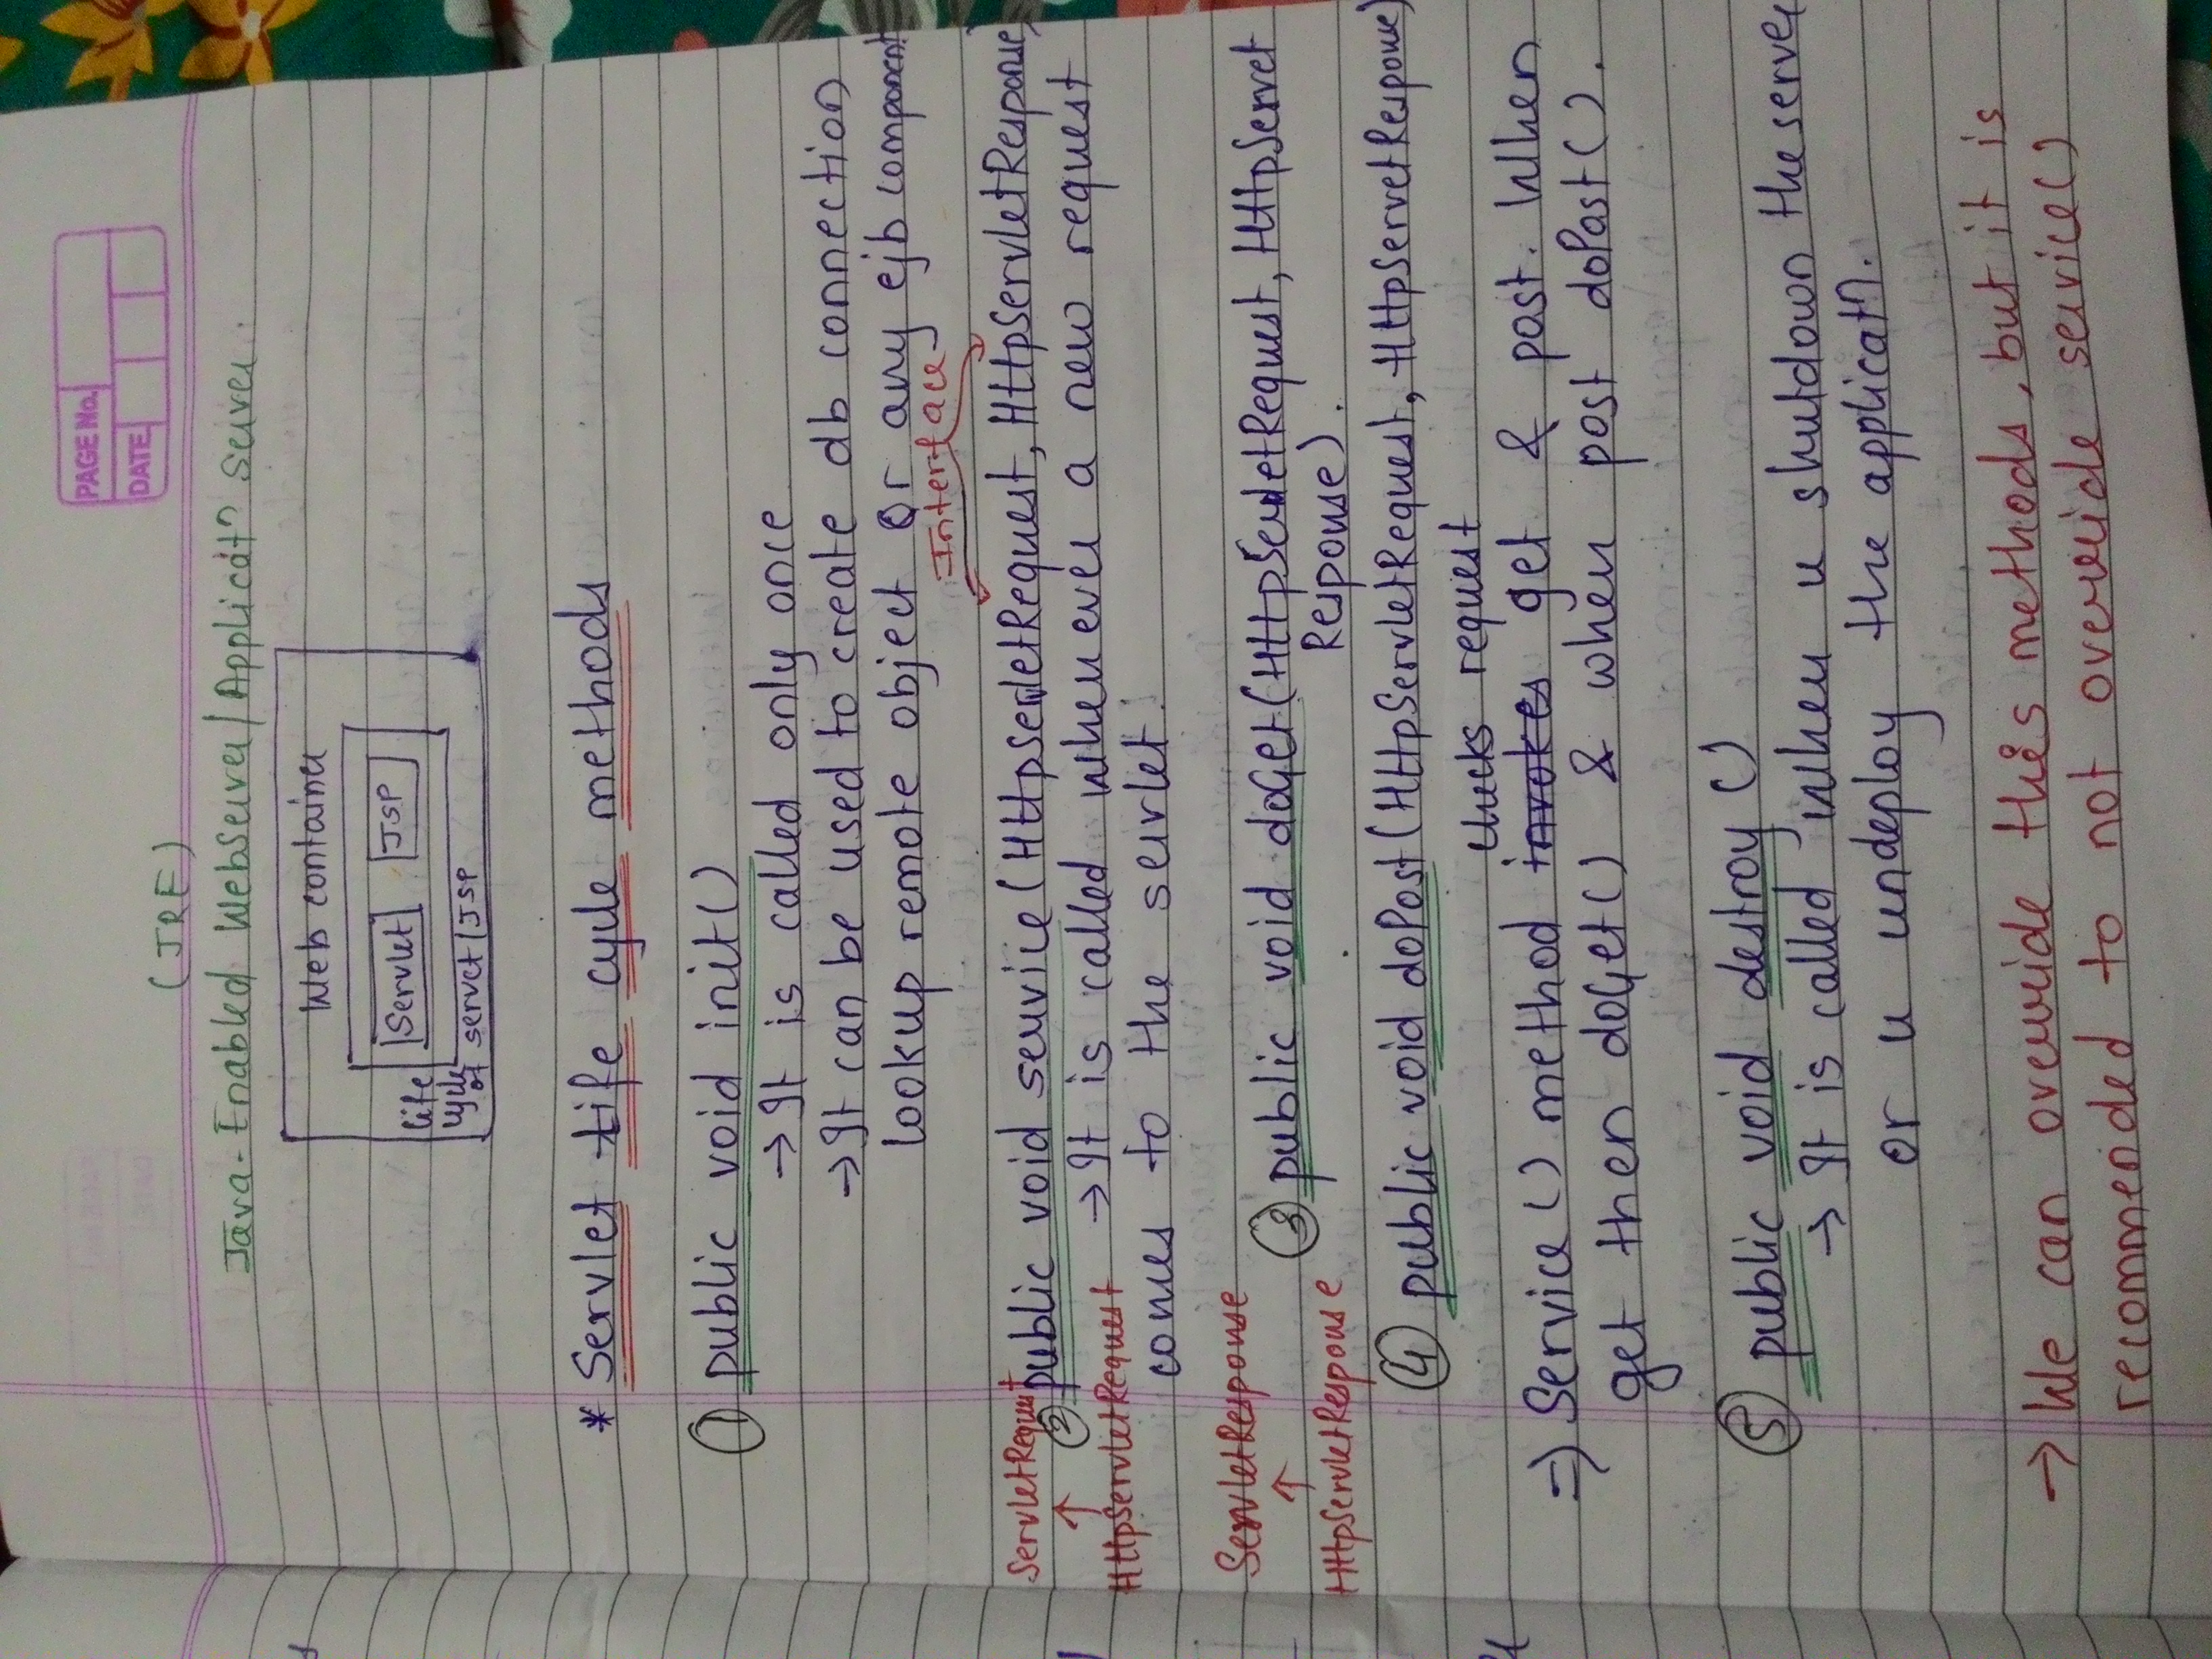 PAGE No.
DATE
(JRE)
Java-Enabled WebServer/Applicatn Server.
Web container
Servlet JSP
life
cycle
of servet/JSP
* Servlet life cycle methods
① public void init()
→ It is called only once
→ It can be used to create db connection
lookup remote object or any ejb component
Interface
ServletRequest
↑
HttpServletRequest
② public void service(HttpServletRequest, HttpServletResponse)
→ It is called whenever a new request
comes to the servlet.
ServletResponse
↑
HttpServletResponse
③ public void doGet(HttpServletRequest, HttpServet
Response).
④ public void doPost(HttpServletRequest, HttpServetResponse)
checks request
⇒ Service() method invokes get & post. When
get then doGet() & when post doPost().
⑤ public void destroy()
→ It is called when u shutdown the server
or u undeploy the applicatn.
→ We can override this methods, but it is
recommended to not override service()